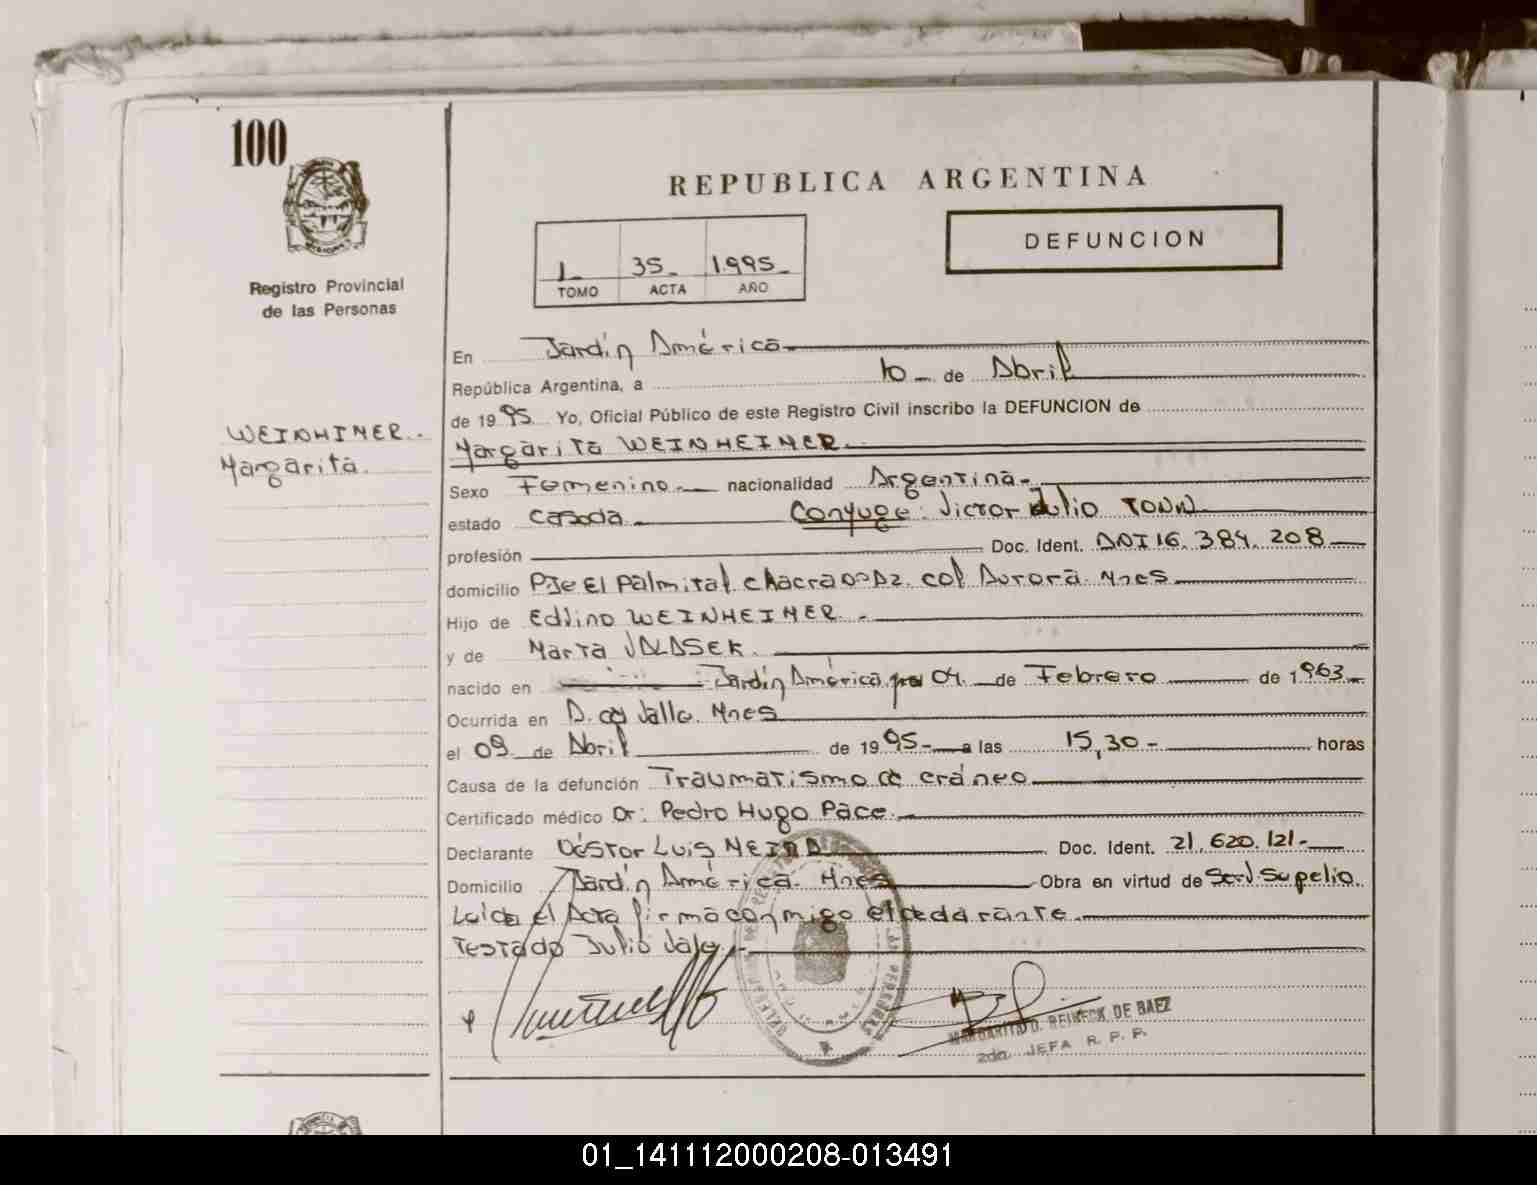 100
REPUBLICA ARGENTINA
1 35 1.995
TOMO ACTA AÑO
DEFUNCION
Registro Provincial
de las Personas
WEINHIMER.
Margarita.
En Jardín América
República Argentina, a 10 de Abril
de 1995 Yo, Oficial Público de este Registro Civil inscribo la DEFUNCION de
Margarita WEINHEIMER.
Sexo Femenino nacionalidad Argentina
estado casada Conyuge: Victor Julio TONN
profesión Doc. Ident. DNI 16.384.208
domicilio Pje El Palmital chacra col Aurora Mnes
Hijo de Edvino WEINHEIMER.
y de Marta VALASEK.
nacido en Jardín América 04 de Febrero de 1963
Ocurrida en Valle. Mnes
el 09 de Abril de 1995 a las 15,30 horas
Causa de la defunción Traumatismo de cráneo
Certificado médico Dr: Pedro Hugo Pace.
Declarante Néstor Luis NEIRA Doc. Ident. 21.620.121.
Domicilio Jardín América. Mnes Obra en virtud de Serv. Sepelio
Leída el Acta firma conmigo el declarante.
Testado Julio Vale
MARGARITA D. REINECK DE BAEZ
2da. JEFA R. P. P.
01_141112000208-013491